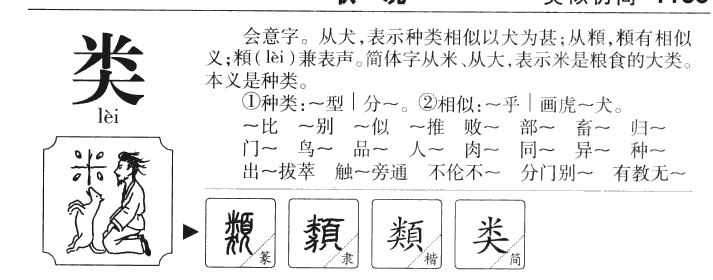 类
lèi
会意字。从犬，表示种类相似以犬为甚；从頪，頪有相似
义；頪（lèi）兼表声。简体字从米、从大，表示米是粮食的大类。
本义是种类。
①种类：～型｜分～。②相似：～乎｜画虎～犬。
～比 ～别 ～似 ～推 败～ 部～ 畜～ 归～
门～ 鸟～ 品～ 人～ 肉～ 同～ 异～ 种～
出～拔萃 触～旁通 不伦不～ 分门别～ 有教无～
類 篆
類 隶
類 楷
类 简